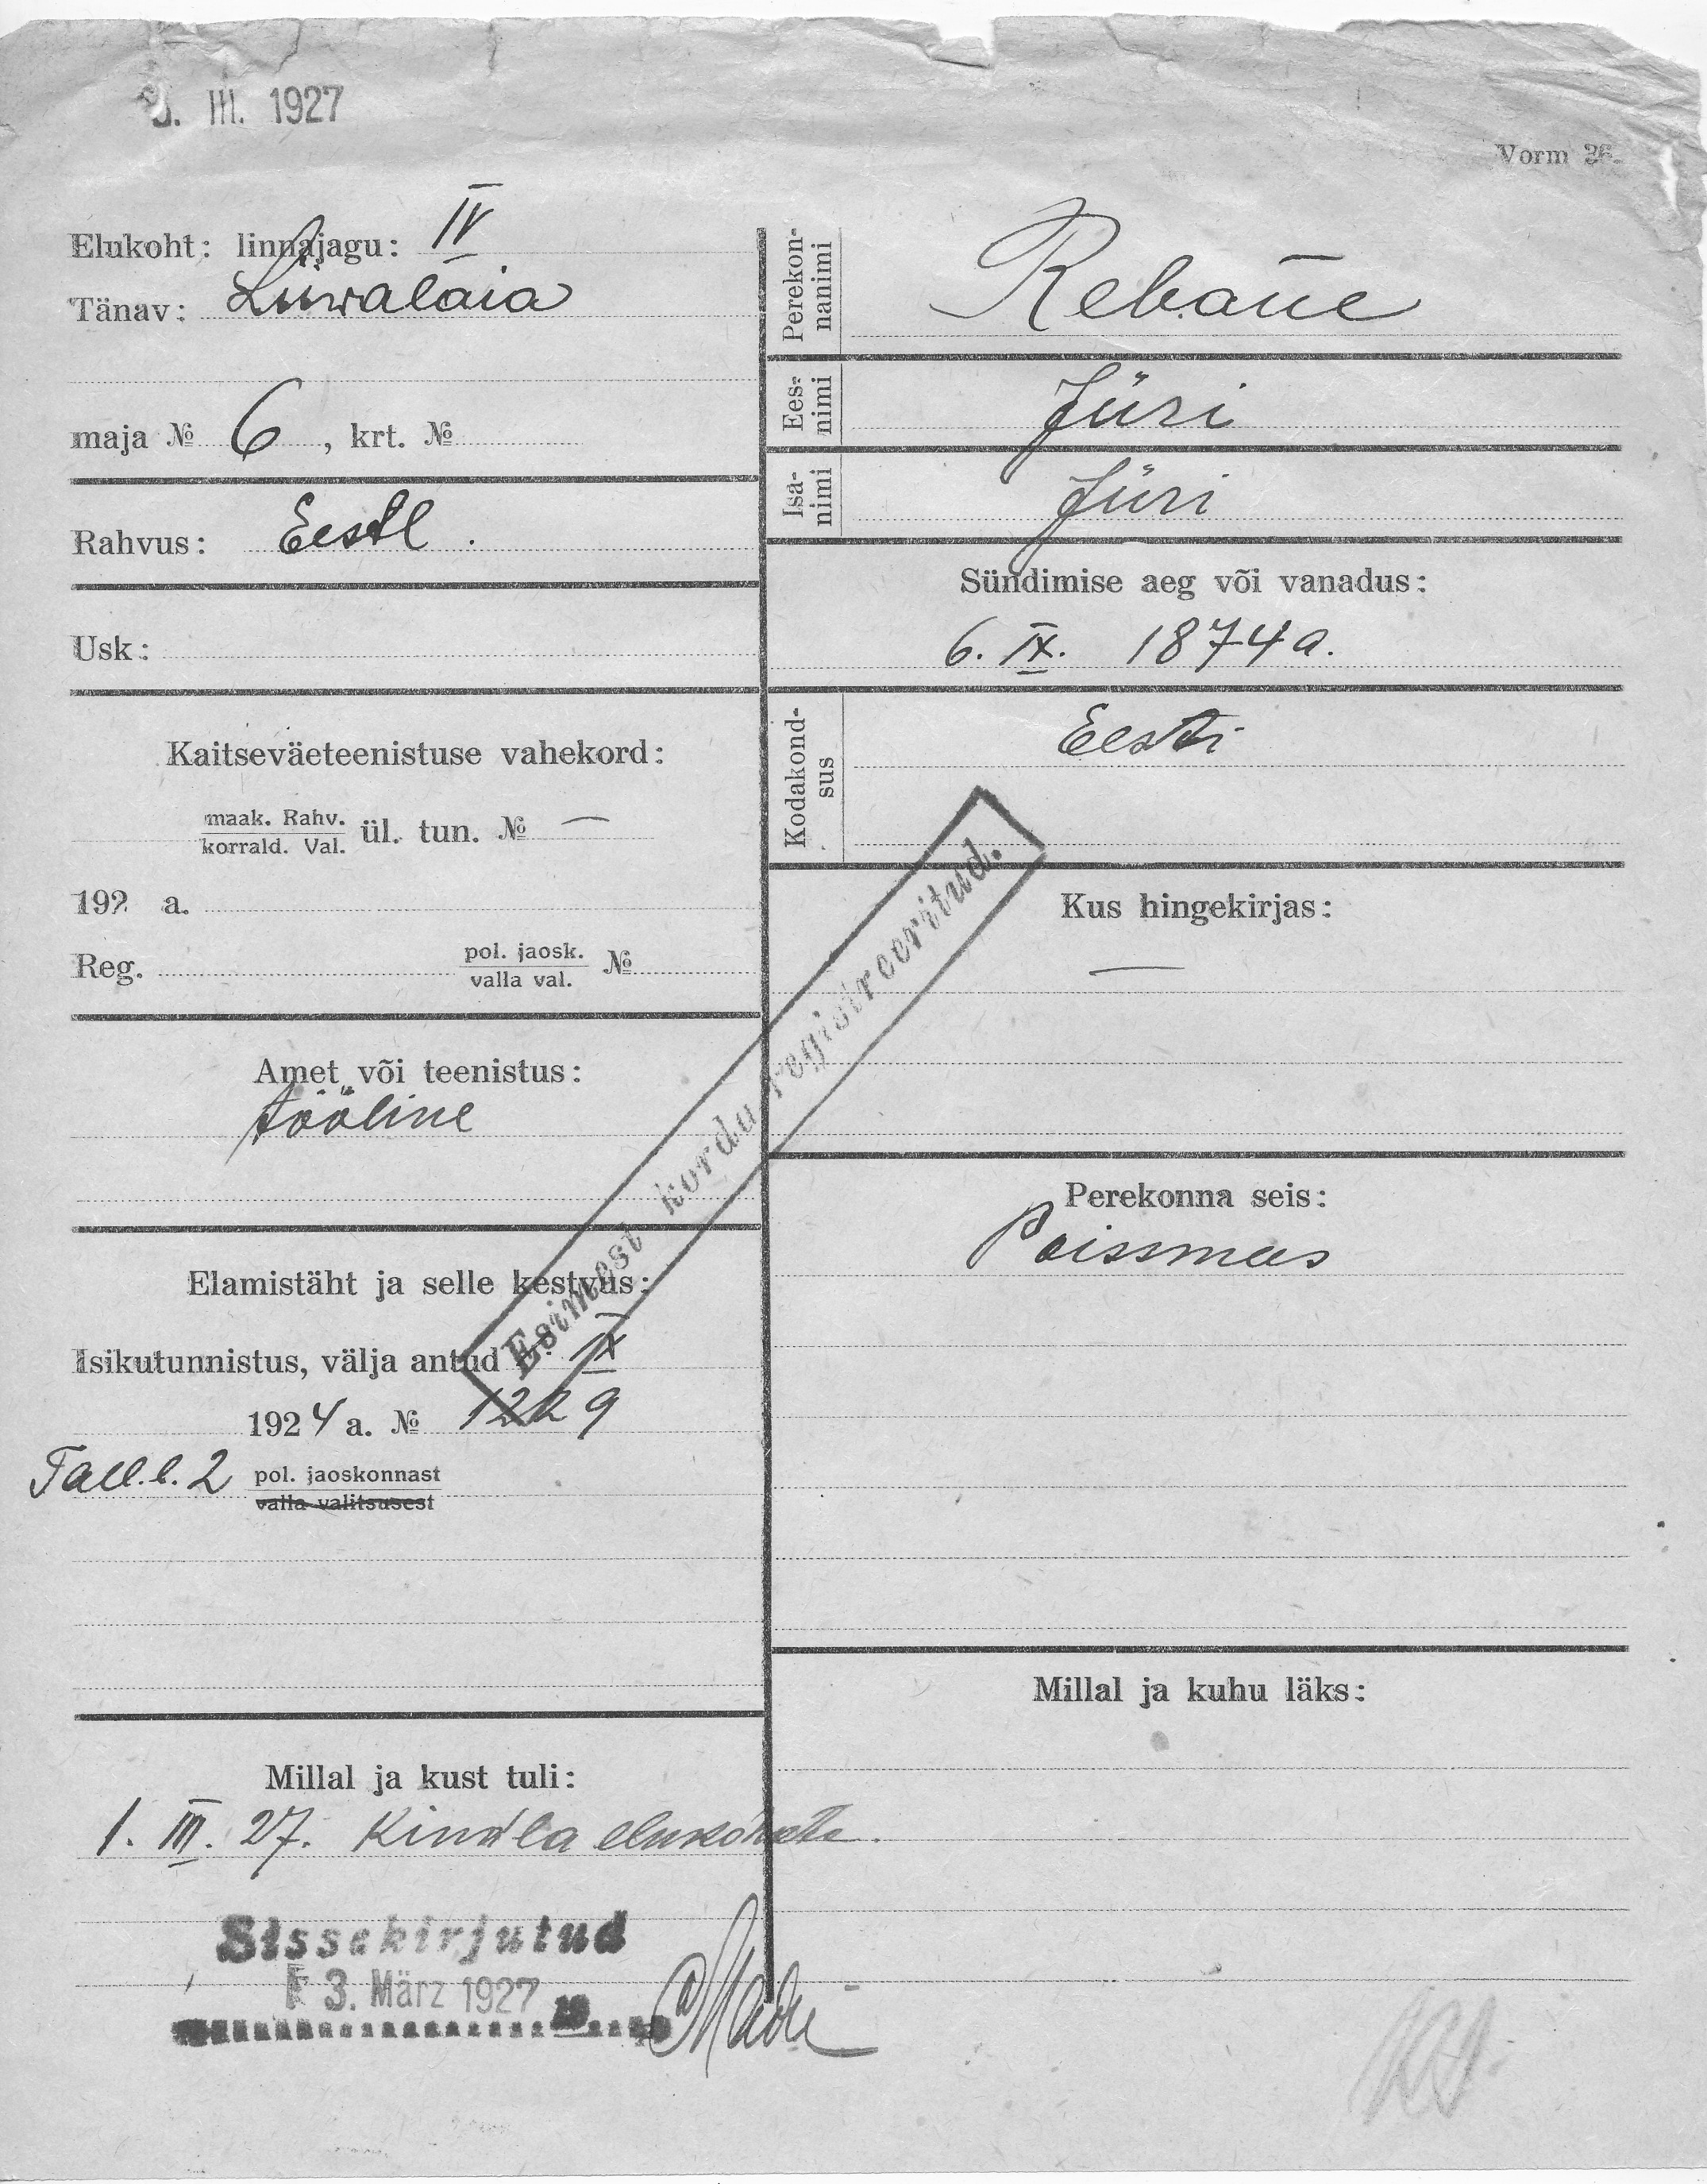 III. 1927
Vorm 26.
Elukoht: linnajagu: IV
Tänav: Liiwalaia
maja № 6, krt. №
Rahvus: Eestl.
Usk:
Kaitseväeteenistuse vahekord:
maak. Rahv.
korrald. Val. ül. tun. № —
192 a.
Reg. pol. jaosk.
valla val. №
Amet või teenistus:
tööline
Elamistäht ja selle kestvus:
Isikutunnistus, välja antud IX
1924 a. № 1229
Tall. l. 2 pol. jaoskonnast
valla valitsusest
Millal ja kust tuli:
1. III. 27. Kindla elukohata.
Sissekirjutud
3. März 1927
19
Esimest kordu registreeritud.
Perekon-
nanimi
Rebane
Ees-
nimi
Jüri
Isa-
nimi
Jüri
Sündimise aeg või vanadus:
6. IX. 1874 a.
Kodakond-
sus
Eesti
Kus hingekirjas:
—
Perekonna seis:
Poissmees
Millal ja kuhu läks: